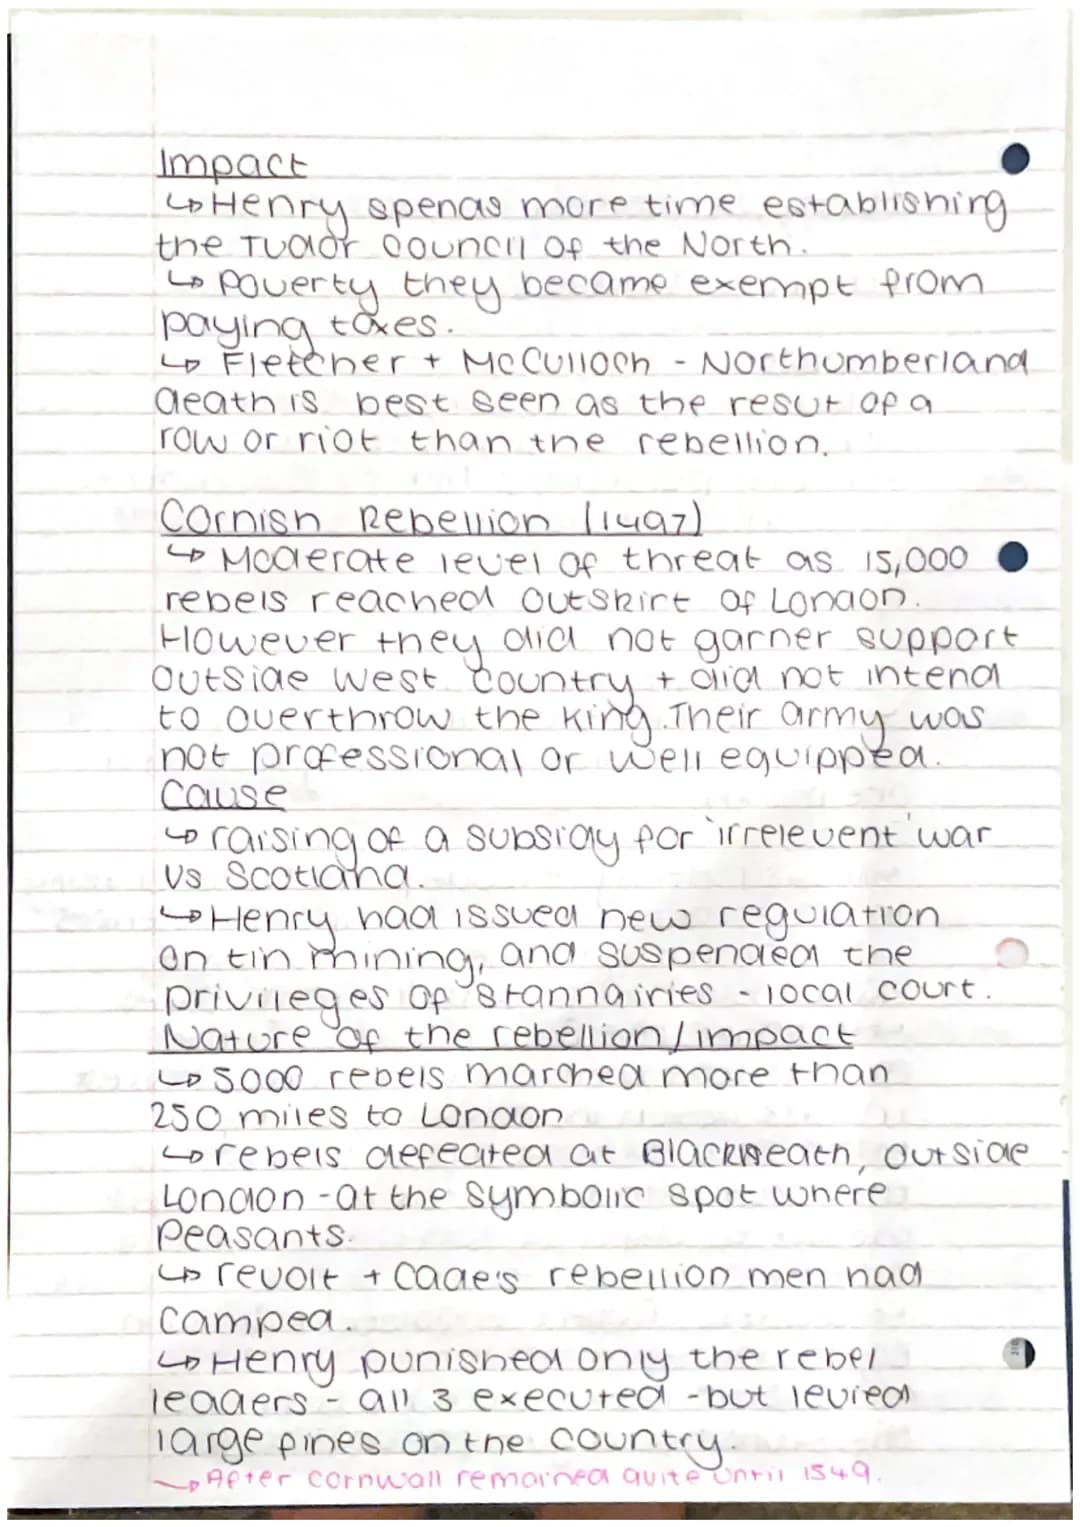 Impact
↳ Henry spends more time establishing
the Tudor Council of the North.
↳ Poverty they became exempt from
paying taxes.
↳ Fletcher + McCulloch - Northumberland
death is best seen as the resut of a
row or riot than the rebellion.
Cornish Rebellion (1497)
↳ Moderate level of threat as 15,000
rebels reached outskirt of London.
However they did not garner support
outside West Country + did not intend
to overthrow the king. Their army was
not professional or well equipped.
Cause
↳ raising of a subsidy for 'irrelevent' war
vs Scotland.
↳ Henry had issued new regulation
on tin mining, and suspended the
privileges of stannairies - local court.
Nature of the rebellion / impact
↳ 5000 rebels marched more than
250 miles to London
↳ rebels defeated at Blackheath, outside
London - at the symbolic spot where
Peasants.
↳ revolt + Cade's rebellion men had
camped.
↳ Henry punished only the rebel
leaders - all 3 executed - but levied
large fines on the country.
→ After cornwall remained quite until 1549.